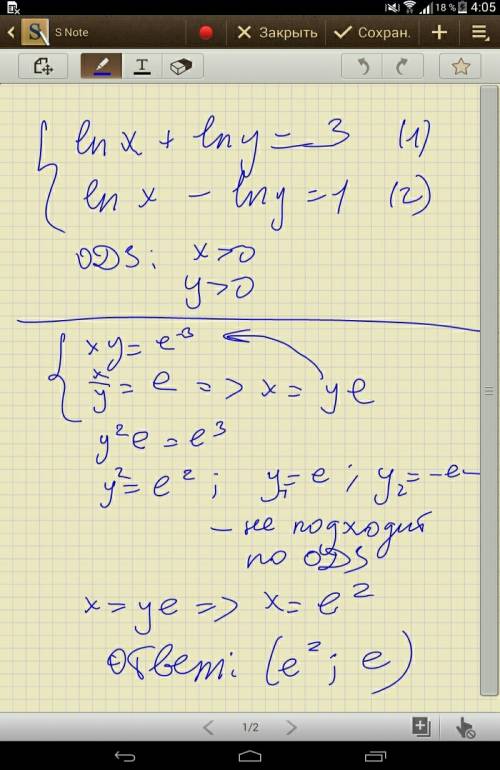 18 % 4:05
S Note Закрыть Сохран.
T
ln x + ln y = 3 (1)
ln x - ln y = 1 (2)
ОДЗ: x>0
y>0
xy = e³
x/y = e => x = ye
y²e = e³
y² = e² ; y₁ = e ; y₂ = -e -
- не подходит
по ОДЗ
x = ye => x = e²
Ответ: (e² ; e)
1/2